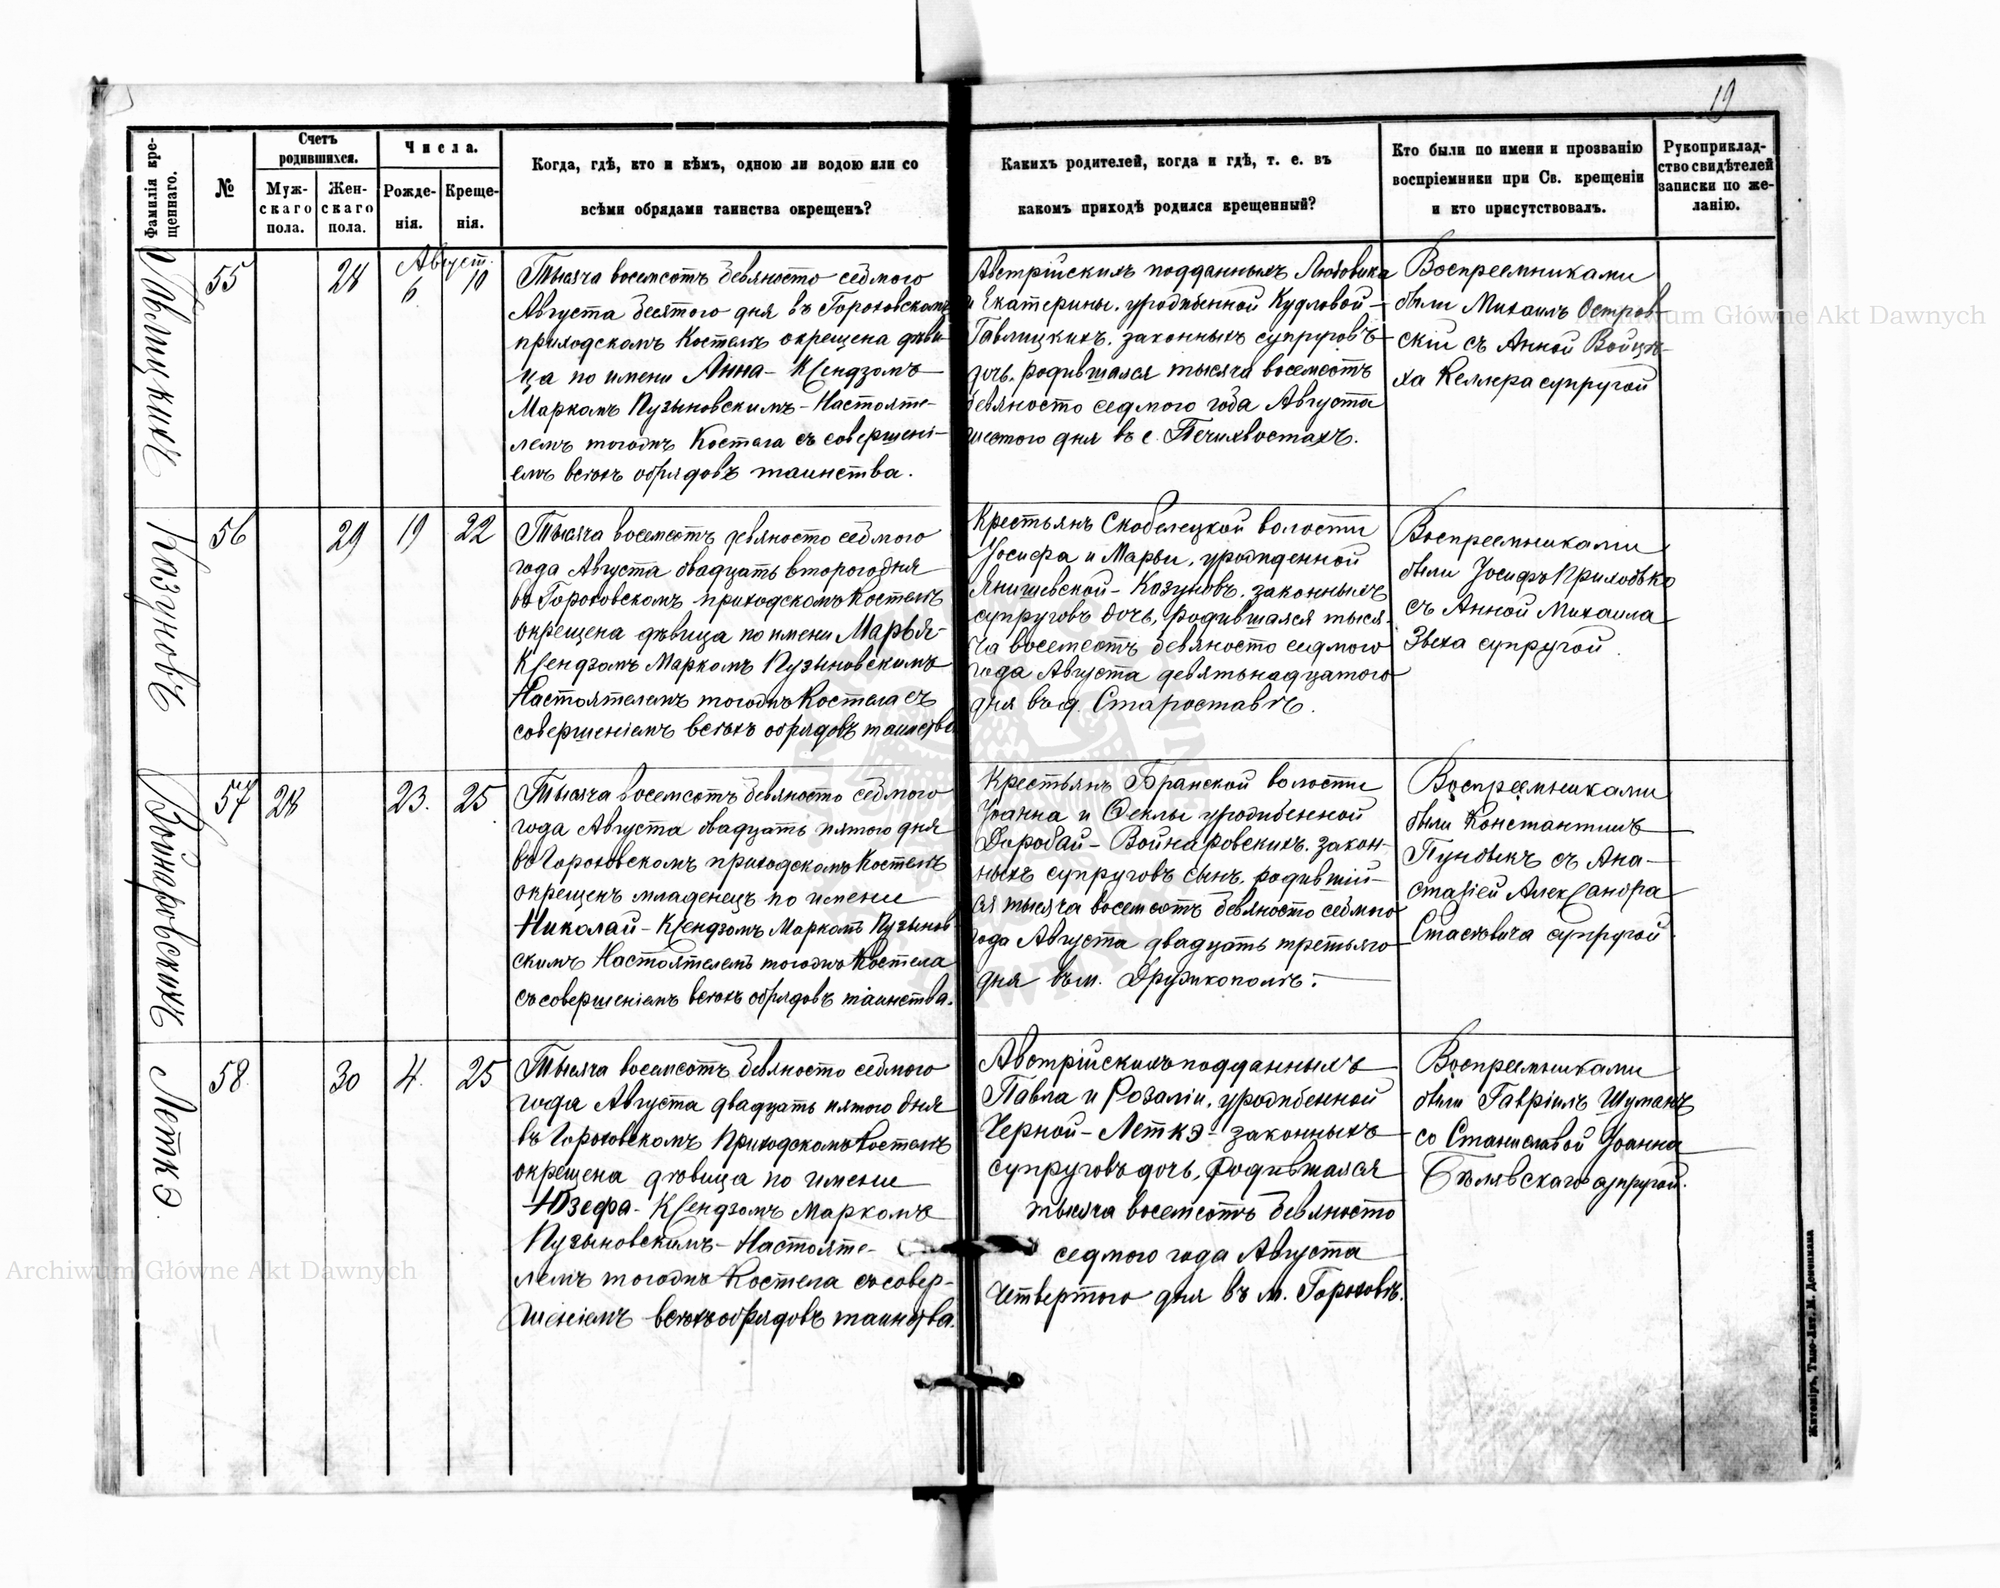 19
Фамилія кре-
щеннаго.
№
Счетъ
родившихся.
Муж-
скаго
пола.
Жен-
скаго
пола.
Числа.
Рожде-
нія.
Креще-
нія.
Когда, гдѣ, кто и кѣмъ, одною ли водою или со
всѣми обрядами таинства окрещенъ?
Какихъ родителей, когда и гдѣ, т. е. въ
какомъ приходѣ родился крещенный?
Кто были по имени и прозванію
воспріемники при Св. крещеніи
и кто присутствовалъ.
Рукоприклад-
ство свидѣтелей
записки по же-
ланію.
Август.
55
28
6
10
Тысяча восемсотъ девяносто седмого
Августа десятого дня въ Гороховскомъ
приходскомъ Костелѣ окрещена дѣви-
ца по имени Анна - Ксендзомъ
Маркомъ Пузыновскимъ - Настояте-
лемъ тогожъ Костела съ совершені-
емъ всѣхъ обрядовъ таинства.
Австрійскихъ подданныхъ Людовика
и Екатерины, урожденной Кудловой -
Гавлицкихъ, законныхъ супруговъ
дочь, родившаяся тысяча восемсотъ
девяносто седмого года Августа
шестого дня въ с. Печихвостахъ.
Воспреемниками
были Михаилъ Остров-
скій съ Анной Войцѣ-
ха Келлера супругой
Казуновъ
56
29
19
22
Тысяча восемсотъ девяносто седмого
года Августа двадцать второго дня
въ Гороховскомъ приходскомъ Костелѣ
окрещена дѣвица по имени Марья -
Ксендзомъ Маркомъ Пузыновскимъ
Настоятелемъ тогожъ Костела съ
совершеніемъ всѣхъ обрядовъ таинства
Крестьянъ Скобелецкой волости
Іосифа и Марьи, урожденной
Янишевской - Казуновъ, законныхъ
супруговъ дочь, родившаяся тыся-
ча восемсотъ девяносто седмого
года Августа девятьнадцатого
дня въ д. Староставѣ.
Воспреемниками
были Іосифъ Приходько
съ Анной Михаила
Звеха супругой.
Войнаровскихъ
57
28
23.
25
Тысяча восемсотъ девяносто седмого
года Августа двадцать пятого дня
въ Гороховскомъ приходскомъ Костелѣ
окрещенъ младенецъ по имени
Николай - Ксендзомъ Маркомъ Пузынов-
скимъ Настоятелемъ тогожъ Костела
съ совершеніемъ всѣхъ обрядовъ таинства.
Крестьянъ Бранской волости
Іоанна и Феклы урожденной
Доробай - Войнаровскихъ, закон-
ныхъ супруговъ сынъ, родившій-
ся тысяча восемсотъ девяносто седмого
года Августа двадцать третьяго
дня въ м. Дружкополѣ.
Воспреемниками
были Константинъ
съ Ана-
стасіей Александра
супругой.
Леткэ
58
30
4.
25
Тысяча восемсотъ девяносто седмого
года Августа двадцать пятого дня
въ Гороховскомъ Приходскомъ Костелѣ
окрещена дѣвица по имени
Юзефа - Ксендзомъ Маркомъ
Пузыновскимъ - Настояте-
лемъ тогожъ Костела съ совер-
шеніемъ всѣхъ обрядовъ таинства.
Австрійскихъ подданныхъ
Павла и Розаліи, урожденной
Черной - Леткэ - законныхъ
супруговъ дочь, родившаяся
тысяча восемсотъ девяносто
седмого года Августа
четвертого дня въ м. Гороховѣ.
Воспреемниками
были Гавріилъ Шуманъ
со Станиславой Іоанна
Бѣлявскаго супругой.
Житоміръ, Типо-Лит. М. Дененмана
Archiwum Główne Akt Dawnych
Archiwum Główne Akt Dawnych